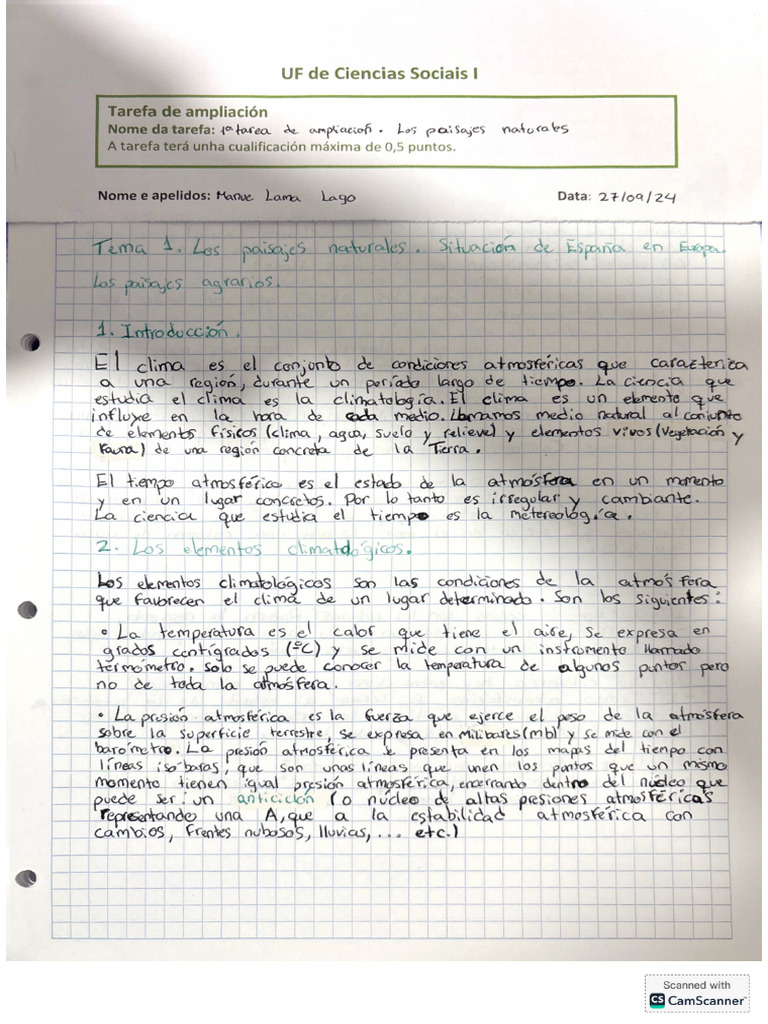 UF de Ciencias Sociais I
Tarefa de ampliación
Nome da tarefa: 1ª tarea de ampliación. Los paisajes naturales
A tarefa terá unha cualificación máxima de 0,5 puntos.
Nome e apelidos: Manue Lama Lago Data: 27/09/24
Tema 1. Los paisajes naturales. Situación de España en Europa.
Los paisajes agrarios.
1. Introducción.
El clima es el conjunto de condiciones atmosféricas que caracteriza
a una región, durante un período largo de tiempo. La ciencia que
estudia el clima es la climatología. El clima es un elemento que
influye en la hora de cada medio. Llamamos medio natural al conjunto
de elementos físicos (clima, agua, suelo y relieve) y elementos vivos (Vegetación y
Fauna) de una región concreta de la Tierra.
El tiempo atmosférico es el estado de la atmósfera en un momento
y en un lugar concretos. Por lo tanto es irregular y cambiante.
La ciencia que estudia el tiempo es la metereología.
2. Los elementos climatológicos.
Los elementos climatológicos son las condiciones de la atmósfera
que favorecen el clima de un lugar determinado. Son los siguientes:
• La temperatura es el calor que tiene el aire, se expresa en
grados centígrados (ºC) y se mide con un instromento llamado
termómetro. Solo se puede conocer la temperatura de algunos puntos pero
no de toda la atmósfera.
• La presión atmosférica es la fuerza que ejerce el peso de la atmósfera
sobre la superficie terrestre, se expresa en milibares (mb) y se mide con el
barómetro. La presión atmosférica se presenta en los mapas del tiempo con
líneas isobaras, que son unas líneas que unen los puntos que un mismo
momento tienen igual presión atmosférica, encerrando dentro del núcleo que
puede ser: un anticiclón (o núcleo de altas presiones atmosféricas
representando una A, que a la estabilidad atmosférica con
cambios, frentes nubosos, lluvias, ... etc.)
Scanned with
CS CamScanner